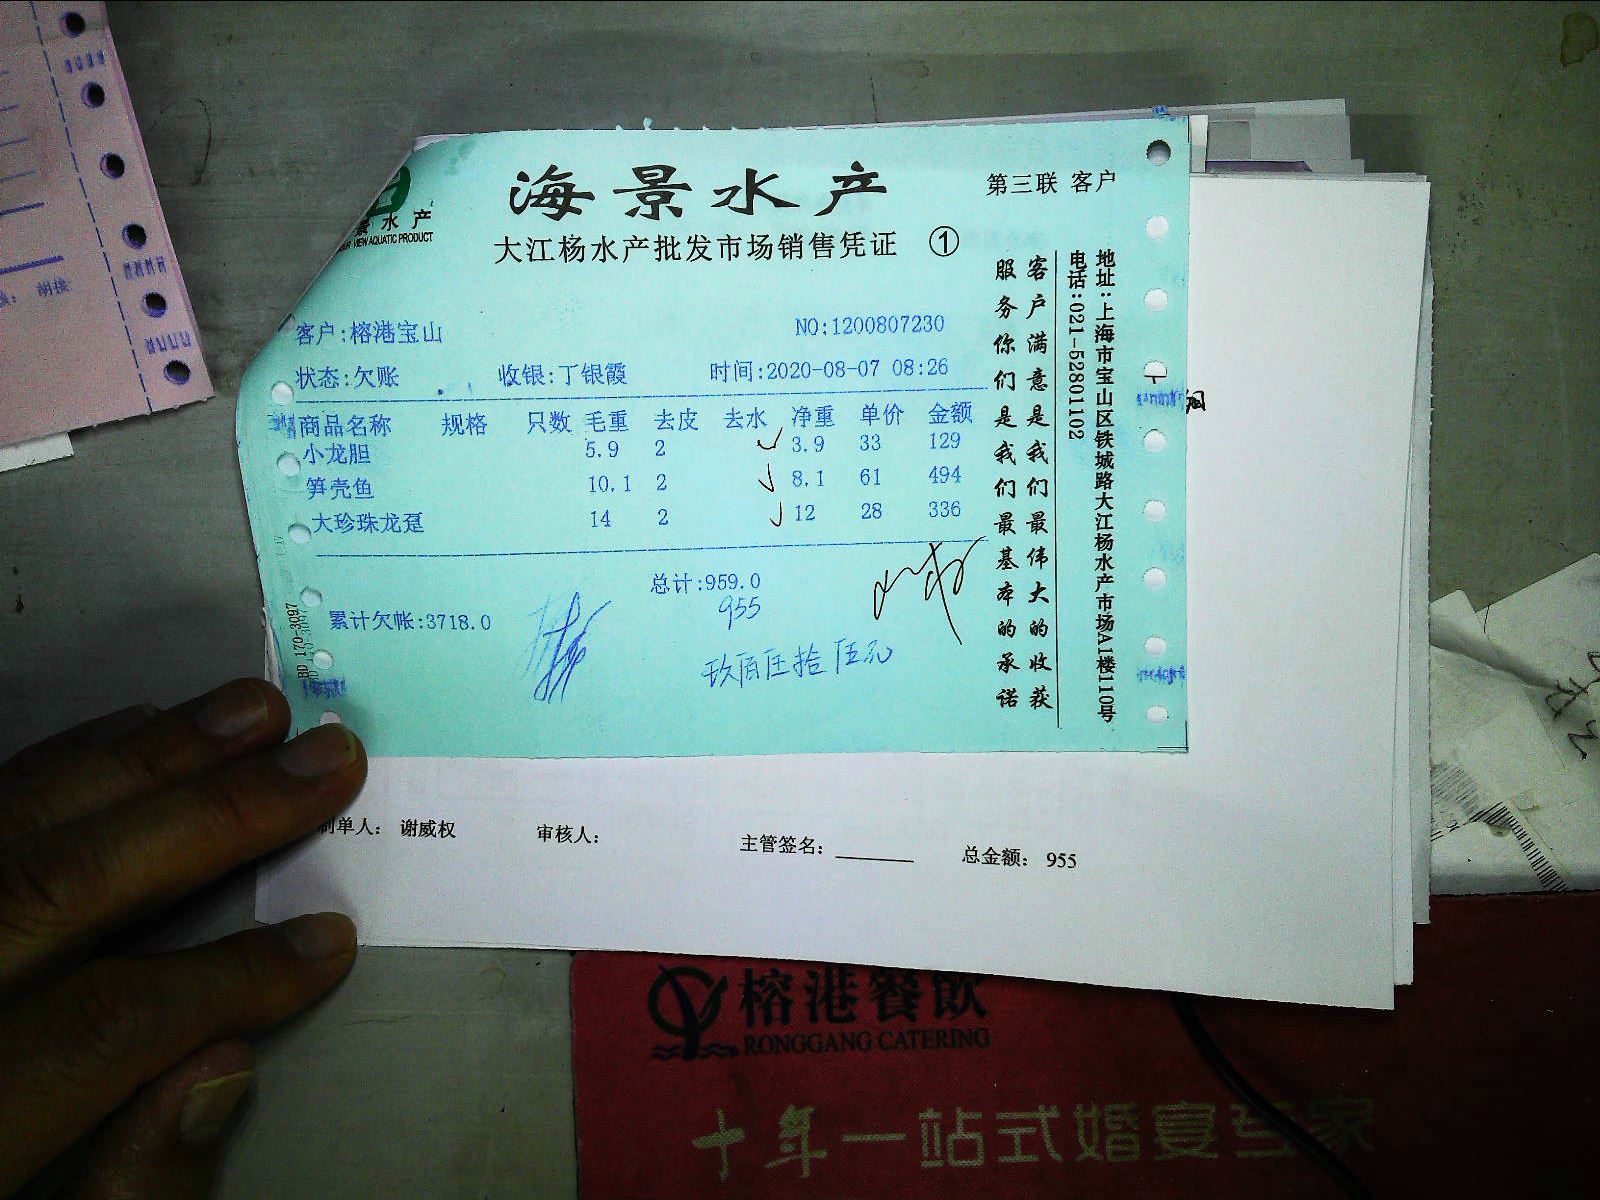 海景水产
第三联 客户
景水产
VIEW AQUATIC PRODUCT
大江杨水产批发市场销售凭证 ①
客户:榕港宝山 NO:1200807230
状态:欠账 收银:丁银霞 时间:2020-08-07 08:26
商品名称 规格 只数 毛重 去皮 去水 净重 单价 金额
小龙胆 5.9 2 3.9 33 129
笋壳鱼 10.1 2 8.1 61 494
大珍珠龙趸 14 2 12 28 336
总计:959.0
955
累计欠帐:3718.0
玖佰伍拾伍元
客户满意是我们最伟大的收获
服务你们是我们最基本的承诺
地址:上海市宝山区铁城路大江杨水产市场A1楼110号
电话:021-52801102
BD 170-3097
制单人: 谢威权 审核人: 主管签名: 总金额: 955
榕港餐飲
RONGGANG CATERING
十年一站式婚宴专家